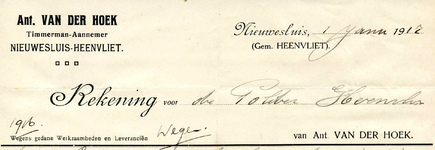 Ant. VAN DER HOEK
Timmerman-Aannemer
NIEUWESLUIS-HEENVLIET.
Nieuwesluis, 1 Janu 1917
(Gem. HEENVLIET).
Rekening voor de Polder
1916.
Wegens gedane Werkzaamheden en Leverantiën
Wege.
van Ant. VAN DER HOEK.